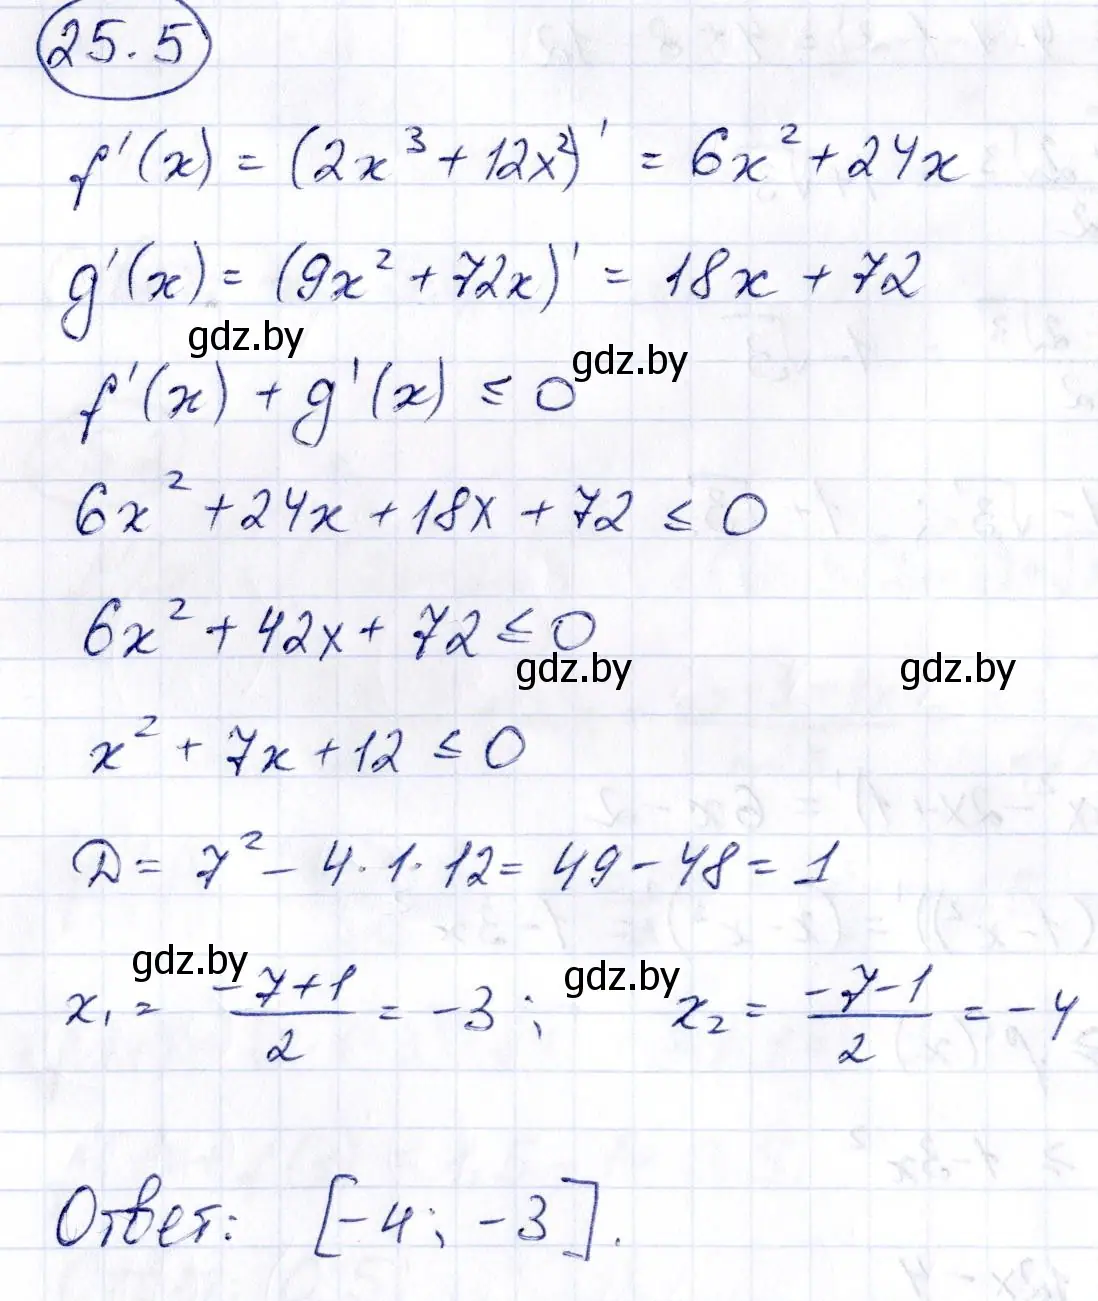 25.5
f'(x) = (2x³ + 12x²)' = 6x² + 24x
g'(x) = (9x² + 72x)' = 18x + 72
gdz.by
gdz.by
f'(x) + g'(x) ≤ 0
6x² + 24x + 18x + 72 ≤ 0
6x² + 42x + 72 ≤ 0
gdz.by gdz.by
x² + 7x + 12 ≤ 0
D = 7² - 4·1·12 = 49 - 48 = 1
gdz.by gdz.by
x₁ = (-7+1)/2 = -3; x₂ = (-7-1)/2 = -4
Ответ: [-4; -3].